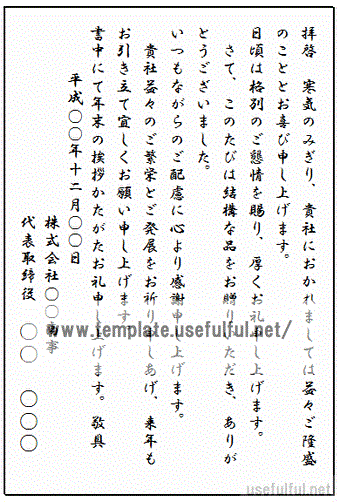 拝啓　寒気のみぎり、貴社におかれましては益々ご隆盛
のこととお喜び申し上げます。
日頃は格別のご懇情を賜り、厚くお礼申し上げます。
さて、このたびは結構な品をお贈りいただき、ありが
とうございました。
いつもながらのご配慮に心より感謝申し上げます。
貴社益々のご繁栄とご発展をお祈り申しあげ、来年も
お引き立て宜しくお願い申し上げます。
書中にて年末の挨拶かたがたお礼申し上げます。敬具
平成〇〇年十二月〇〇日
株式会社〇〇商事
代表取締役　〇〇　〇〇〇
www.template.usefulful.net/
usefulful.net